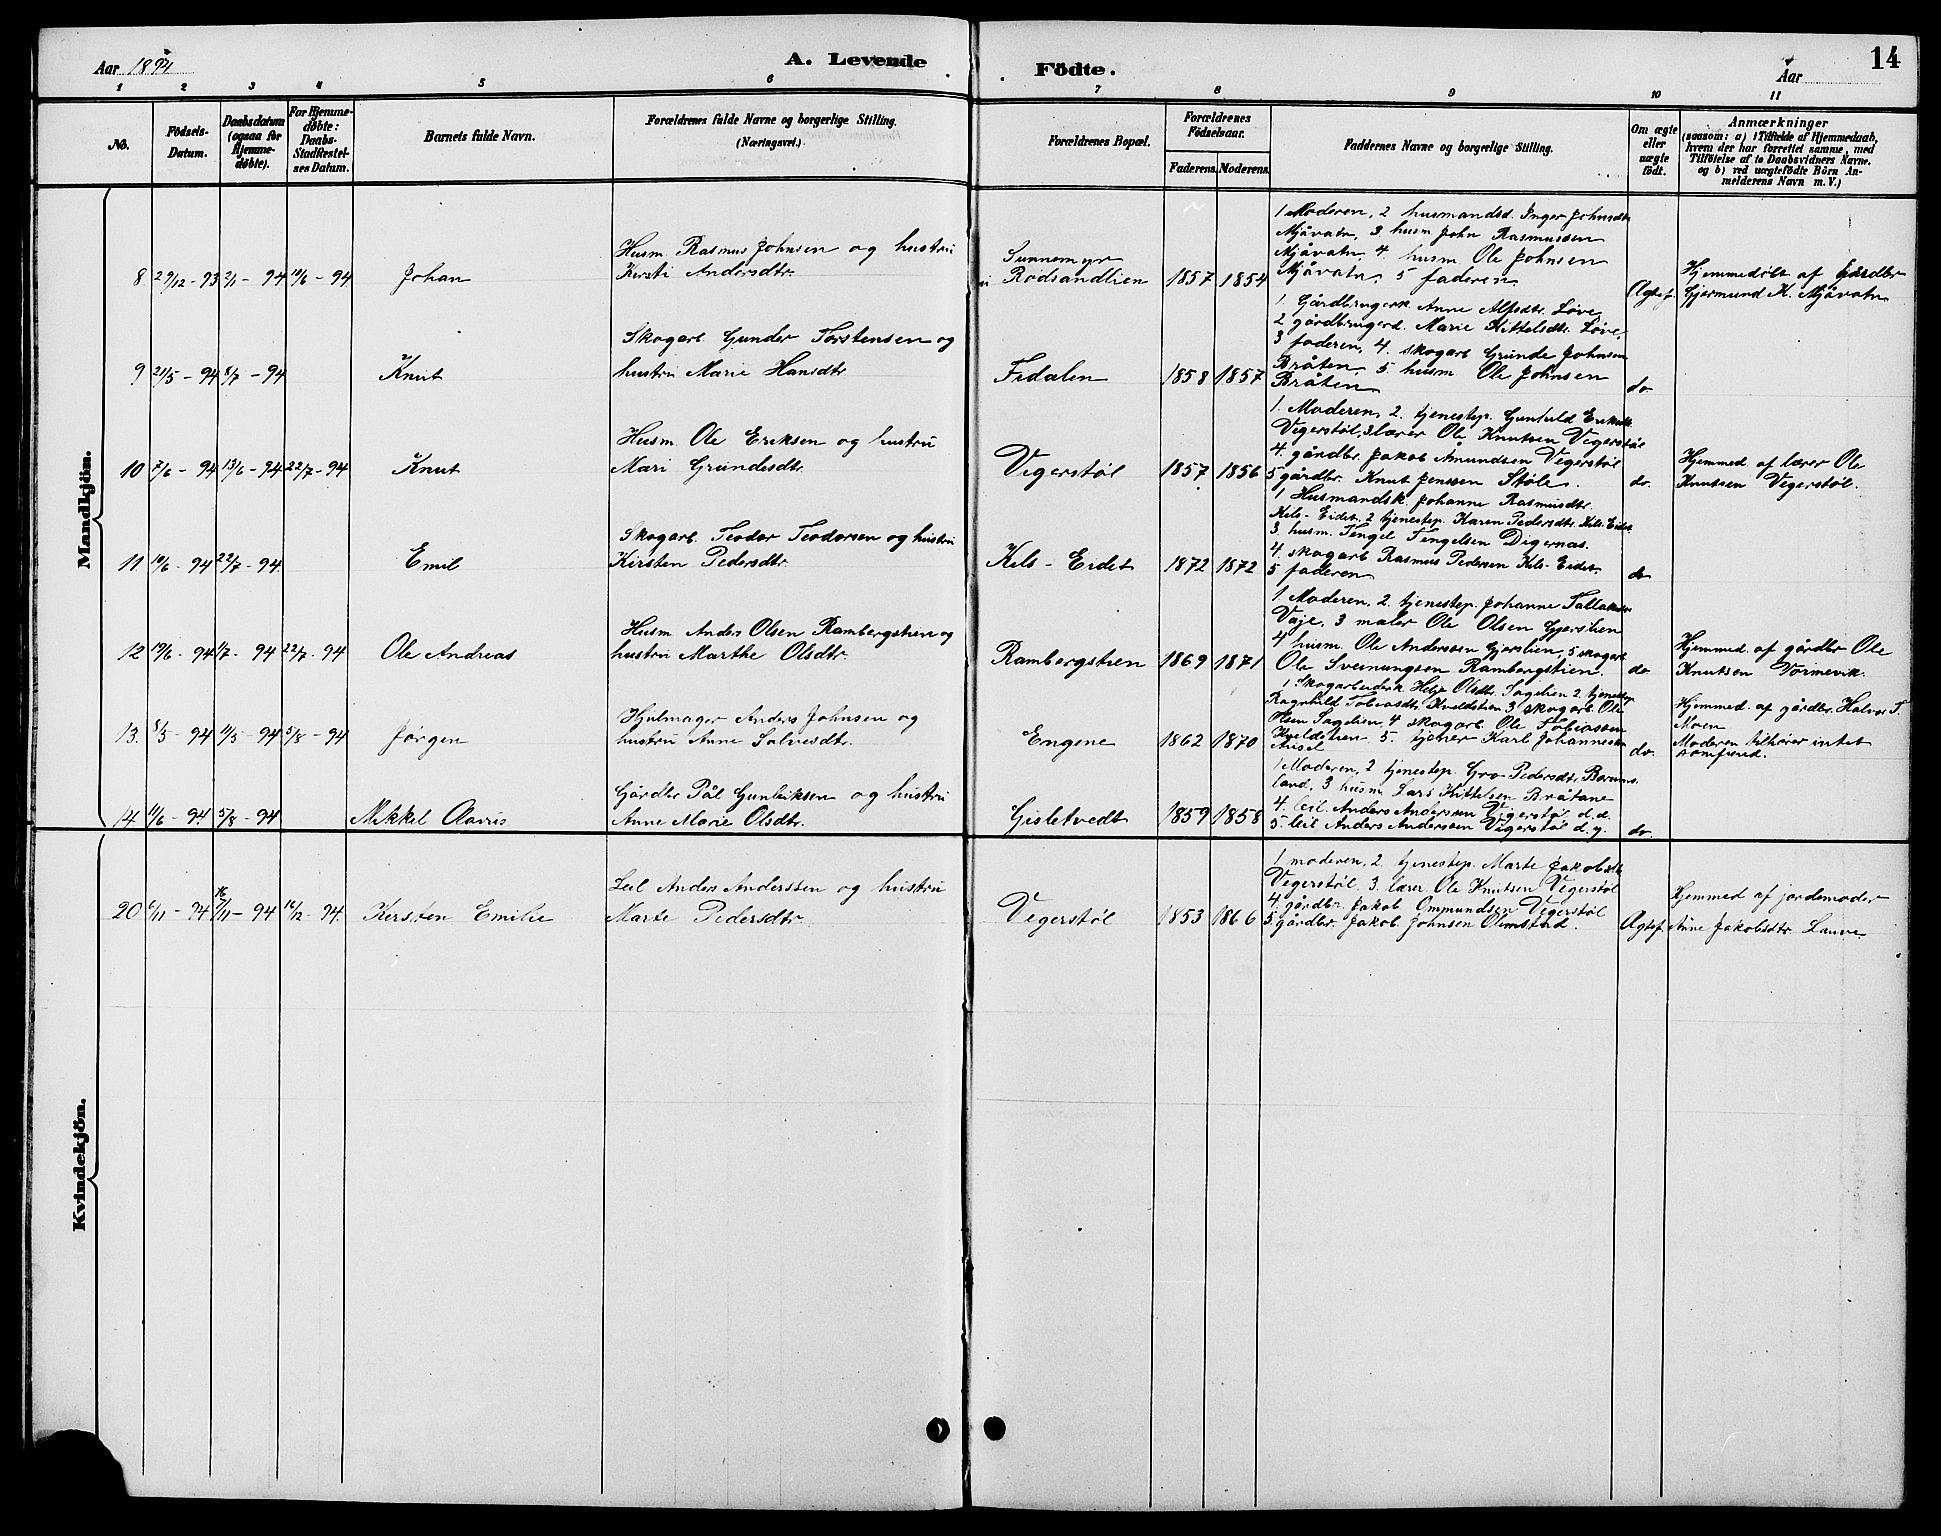 Aar 1894
A. Levende Födte.
Aar
14
1 2 3 4 5 6 7 8 9 10 11
No.
Födsels-Datum.
Daabsdatum (ogsaa for Hjemme-döbte).
For Hjemme-döbte: Daabs-Stadfæstel-ses Datum.
Barnets fulde Navn.
Forældrenes fulde Navne og borgerlige Stilling.
(Næringsvei.)
Forældrenes Bopæl.
Forældrenes Födselsaar.
Faderens. Moderens.
Faddernes Navne og borgerlige Stilling.
Om ægte eller uægte födt.
Anmærkninger
(saasom: a) i Tilfælde af Hjemmedaab,
hvem der har forrettet samme, med
Tilföielse af to Daabsvidners Navne,
og b) ved uægtefödte Börn An-
melderens Navn m. V.)
Mandkjön.
8 29/12 - 93 2/1 - 94 10/6 - 94 Johan
Husm Rasmus Johnsen og hustru
Kirsti Andersdtr.
Sunnemyr
Rodsandlien 1857 1854
1 Moderen, 2 husmandsd. Inger Johnsdtr
Mjåvatn, 3 husm John Rasmussen
Mjåvatn, 4. husm. Ole Johnsen
Mjåvatn, 5 faderen.
Ægtef.
Hjemmedøbt af Gårdbr
Gjermund K. Mjåvatn
9 21/5 - 94 8/7 - 94 Knut
Skogarb Gunder Torstensen og
hustru Marie Hansdtr
Fidalen 1858 1857
1. Gårdbrugerk. Anne Alfsdtr. Løve,
2 gårdbrugerd. Marie Kittelsdtr. Løve,
3 faderen, 4. skogarb Grunde Johnsen
Bråten, 5. husm Ole Johnsen
Bråten
do
10 7/6 - 94 13/6 - 94 22/7 - 94 Knut
Husm Ole Eriksen og hustru
Mari Grundesdtr.
Vegerstøl 1857 1856
1. Moderen, 2. tjenestep. Gunhild Eriksdtr
Vegerstøl, 3 lærer Ole Knutsen Vegerstøl
4. gårdbr. Jakob Amundsen Vegerstøl
5 gårdbr. Knut Jenssen Støle.
do.
Hjemmed af lærer Ole
Knutsen Vegerstøl.
11 10/6 - 94 22/7 - 94. Emil
Skogarb. Teodor Teodorsen og hustru
Kirsten Pedersdtr.
Kils-Eidet 1872 1872
1 Husmandsk Johanne Rasmusdtr.
Kils-Eidet, 2 tjenestep. Karen Pedersdtr. Kils-Eidet
3. husm. Tengel Tengelsen Digernæs.
4. skogarb Rasmus Pedersen Kils-Eidet.
5 faderen
do
12 19/6 - 94 1/7 - 94 22/7 - 94 Ole Andreas
Husm Anders Olsen Rambergstien og
hustru Marthe Olsdtr.
Rambergstien 1869 1871
1. Moderen, 2. tjenestep. Johanne Tallaksdtr
Vaje, 3 maler Ole Olsen Gjerslien
4 husm. Ole Anderssen Gjerslien, 5 skogarb
Ole Sveinungsen Rambergstien.
do.
Hjemmed af gårdbr Ole
Knutsen Vormevik.
13. 8/5 - 94 11/5 - 94 5/8 - 94 Jørgen
Hjulmager Anders Johnsen og
hustru Anne Salvesdtr.
Engene 1862 1870
1 Skogarbeiderk Helje Olsdtr. Sagelien 2. tjenestep
Ragnhild Tobiasdtr. Kveldstien 3 skogarb. Ole
Olsen Sagelien, 4 skogarb. Ole Tobiassen
Kveldstien 5. tjener Karl Johannesen
do.
Hjemmed af gårdbr. Halvor T.
Moen
Moderen tilhører intet
samfund.
14 11/6 - 94. 5/8 - 94 Mikkel Aavris
Gårdbr Pål Gunleiksen og hustru
Anne Marie Olsdtr.
Gisletvedt 1859 1858
1 Moderen, 2 tjenestep. Gro Pedersdtr. Børøms-
land, 3 husm Lars Kittelsen Bråtane
4. leil. Anders Andersen Vegerstøl d.æ.
5. leil Anders Andersen Vegerstøl d.y.
do.
Kvindekjön.
20 6/11 - 94 16/11 - 94 16/12 - 94. Kirsten Emilie
Leil Anders Andersen og hustru
Marte Pedersdtr.
Vegerstøl 1853 1866
1 moderen, 2. tjenestep. Marte Jakobsdtr
Vegerstøl, 3. lærer Ole Knutsen Vegerstøl
4. gårdbr. Jakob Ommundsen Vegerstøl
5. gårdbr. Jakob Johnsen Olimstad.
Ægtef.
Hjemmed af jordemoder
Anne Jakobsdtr. Lauve.